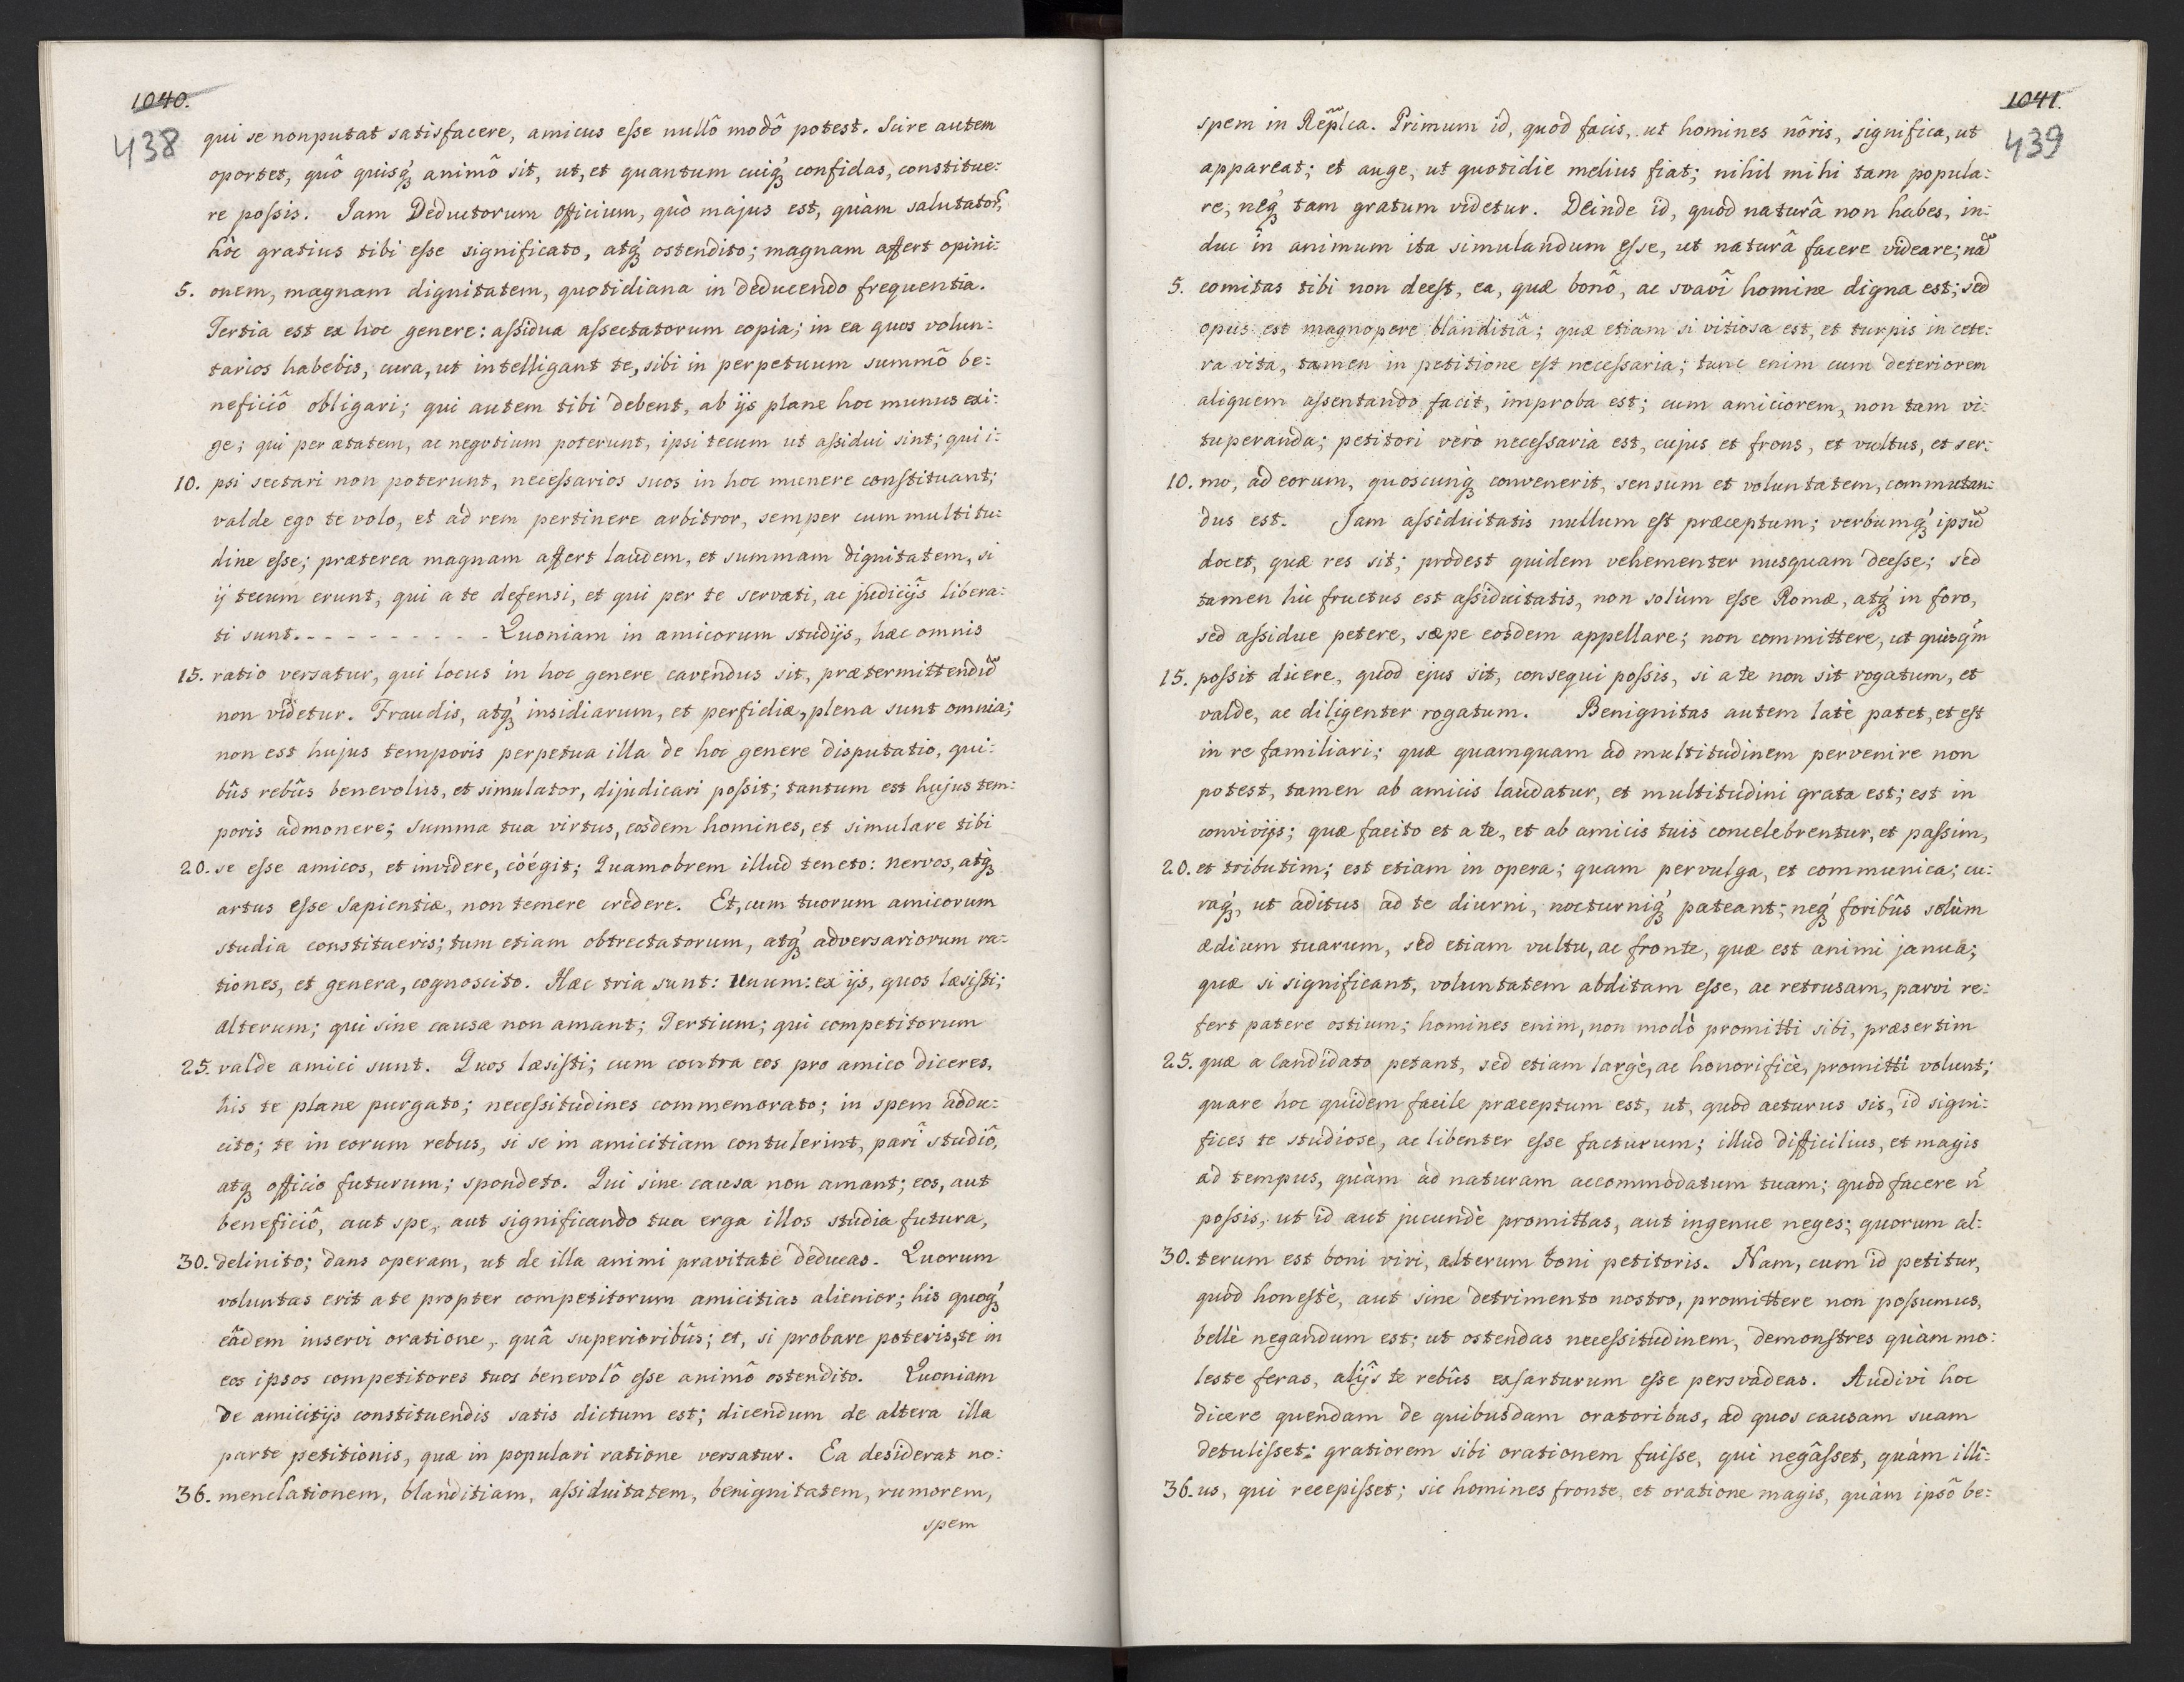 1040.
438
qui se non putat satisfacere, amicus esse nullô modô potest. Scire autem
oportet, quô quisq́ꝫ animô sit, ut, et quantum cuiq́ꝫ confidas, constitue:
re possis. Jam Deductorum officium, quò majus est, quàm salutator̃,
hôc gratius tibi esse significato, atq́ꝫ ostendito; magnam affert opini:
5. onem, magnam dignitatem, quotidiana in deducendo frequentia.
Tertia est ex hoc genere: assidua assectatorum copia; in ea quos volun:
tarios habebis, cura, ut intelligant te, sibi in perpetuum summô be:
neficiô obligari; qui autem tibi debent, ab ijs plane hoc munus exi:
ge; qui per ætatem, ac negotium poterunt, ipsi tecum ut assidui sint; qui i:
10. psi sectari non poterunt, necessarios suos in hoc munere constituant;
valde ego te volo, et ad rem pertinere arbitror, semper cum multitu:
dine esse; præterea magnam affert laudem, et summam dignitatem, si
ij tecum erunt, qui a te defensi, et qui per te servati, ac judicijs libera:
ti sunt. - - - - - - - - - - Quoniam in amicorum studijs, hæc omnis
15. ratio versatur, qui locus in hoc genere cavendus sit, prætermittendũ
non videtur. Fraudis, atq́ꝫ insidiarum, et perfidiæ, plena sunt omnia;
non est hujus temporis perpetua illa de hoc genere disputatio, qui:
bûs rebûs benevolus, et simulator, dijudicari possit; tantum est hujus tem:
poris admonere; summa tua virtus, eosdem homines, et simulare tibi
20. se esse amicos, et invidere, cöégit; Quamobrem illud teneto: nervos, atq́ꝫ
artus esse sapientiæ, non temere credere. Et, cum tuorum amicorum
studia constitueris; tum etiam obtrectatorum, atq́ꝫ adversariorum ra:
tiones, et genera, cognoscito. Hæc tria sunt: Unum: ex ijs, quos læsisti;
alterum; qui sine causa non amant; Tertium; qui competitorum
25. valde amici sunt. Quos læsisti; cum contra eos pro amico diceres,
his te plane purgato; necessitudines commemorato; in spem addu:
cito; te in eorum rebus, si se in amicitiam contulerint, parî studiô,
atqꝫ officio futurum; spondeto. Qui sine causa non amant; eos, aut
beneficiô, aut spe, aut significando tua erga illos studia futura,
30. delinito; dans operam, ut de illa animi pravitate deducas. Quorum
voluntas erit a te propter competitorum amicitias alienior; his quoq́ꝫ
eâdem inservi oratione, quâ superioribûs; et, si probare poteris, te in
eos ipsos competitores tuos benevolô esse animô ostendito. Quoniam
de amicitijs constituendis satis dictum est; dicendum de altera illa
parte petitionis, quæ in populari ratione versatur. Ea desiderat no:
36. menclationem, blanditiam, assiduitatem, benignitatem, rumorem,
spem
1041.
439
spem in Rep̃lca. Primum id, quod facis, ut homines nôris, significa, ut
appareat; et auge, ut quotidie melius fiat; nihil mihi tam popula:
re, neq́ꝫ tam gratum videtur. Deinde id, quod naturâ non habes, in:
duc in animum ita simulandum esse, ut naturâ facere videare; nã
5. comitas tibi non deest, ea, quæ bonô, ac svavî homine digna est; sed
opus est magnopere blanditiâ; quæ etiam si vitiosa est, et turpis in cete:
ra vita, tamen in petitione est necessaria; tunc enim cum deteriorem
aliquem assentando facit, improba est; cum amiciorem, non tam vi:
tuperanda; petitori verò necessaria est, cujus et frons, et vultus, et ser:
10. mo, ad eorum, quoscunq́ꝫ convenerit, sensum et voluntatem, commutan:
dus est. Jam assiduitatis nullum est præceptum; verbumq́ꝫ ipsũ
docet, quæ res sit; prodest quidem vehementer nusquam deesse; sed
tamen hic fructus est assiduitatis, non solùm esse Romæ, atq́ꝫ in foro,
sed assidue petere, sæpe eosdem appellare; non committere, ut quisq̃m
15. possit dicere, quod ejus sit, consequi possis, si a te non sit rogatum, et
valde, ac diligenter rogatum. Benignitas autem latè patet, et est
in re familiari; quæ quamquam ad multitudinem pervenire non
potest, tamen ab amicis laudatur, et multitudini grata est; est in
convivijs; quæ facito et a te, et ab amicis tuis concelebrentur, et passim,
20. et tributim; est etiam in opera; quam pervulga, et communica; cu:
raq́ꝫ, ut aditus ad te diurni, nocturniq́ꝫ pateant; neq́ꝫ foribûs solùm
ædium tuarum, sed etiam vultu, ac fronte, quæ est animi janua;
quæ si significant, voluntatem abditam esse, ac retrusam, parvi re:
fert patere ostium; homines enim, non modò promitti sibi, præsertim
25. quæ a Candidato petant, sed etiam largè, ac honorificè, promitti volunt;
quare hoc quidem facile præceptum est, ut, quod acturus sis, id signi:
fices te studiose, ac libenter esse facturum; illud difficilius, et magis
ad tempus, quàm ad naturam accommodatum tuam; quod facere ñ
possis, ut id aut jucundè promittas, aut ingenue neges; quorum al:
30. terum est boni viri, alterum boni petitoris. Nam, cum id petitur,
quod honestè, aut sine detrimento nostro, promittere non possumus,
bellè negandum est; ut ostendas necessitudinem, demonstres quàm mo:
leste feras, alijs te rebûs exsarturum esse persvadeas. Audivi hoc
dicere quendam de quibusdam oratoribus, ad quos causam suam
detulisset: gratiorem sibi orationem fuisse, qui negâsset, quàm illi:
36. us, qui recepisset; sic homines fronte, et oratione magis, quàm ipsô be: